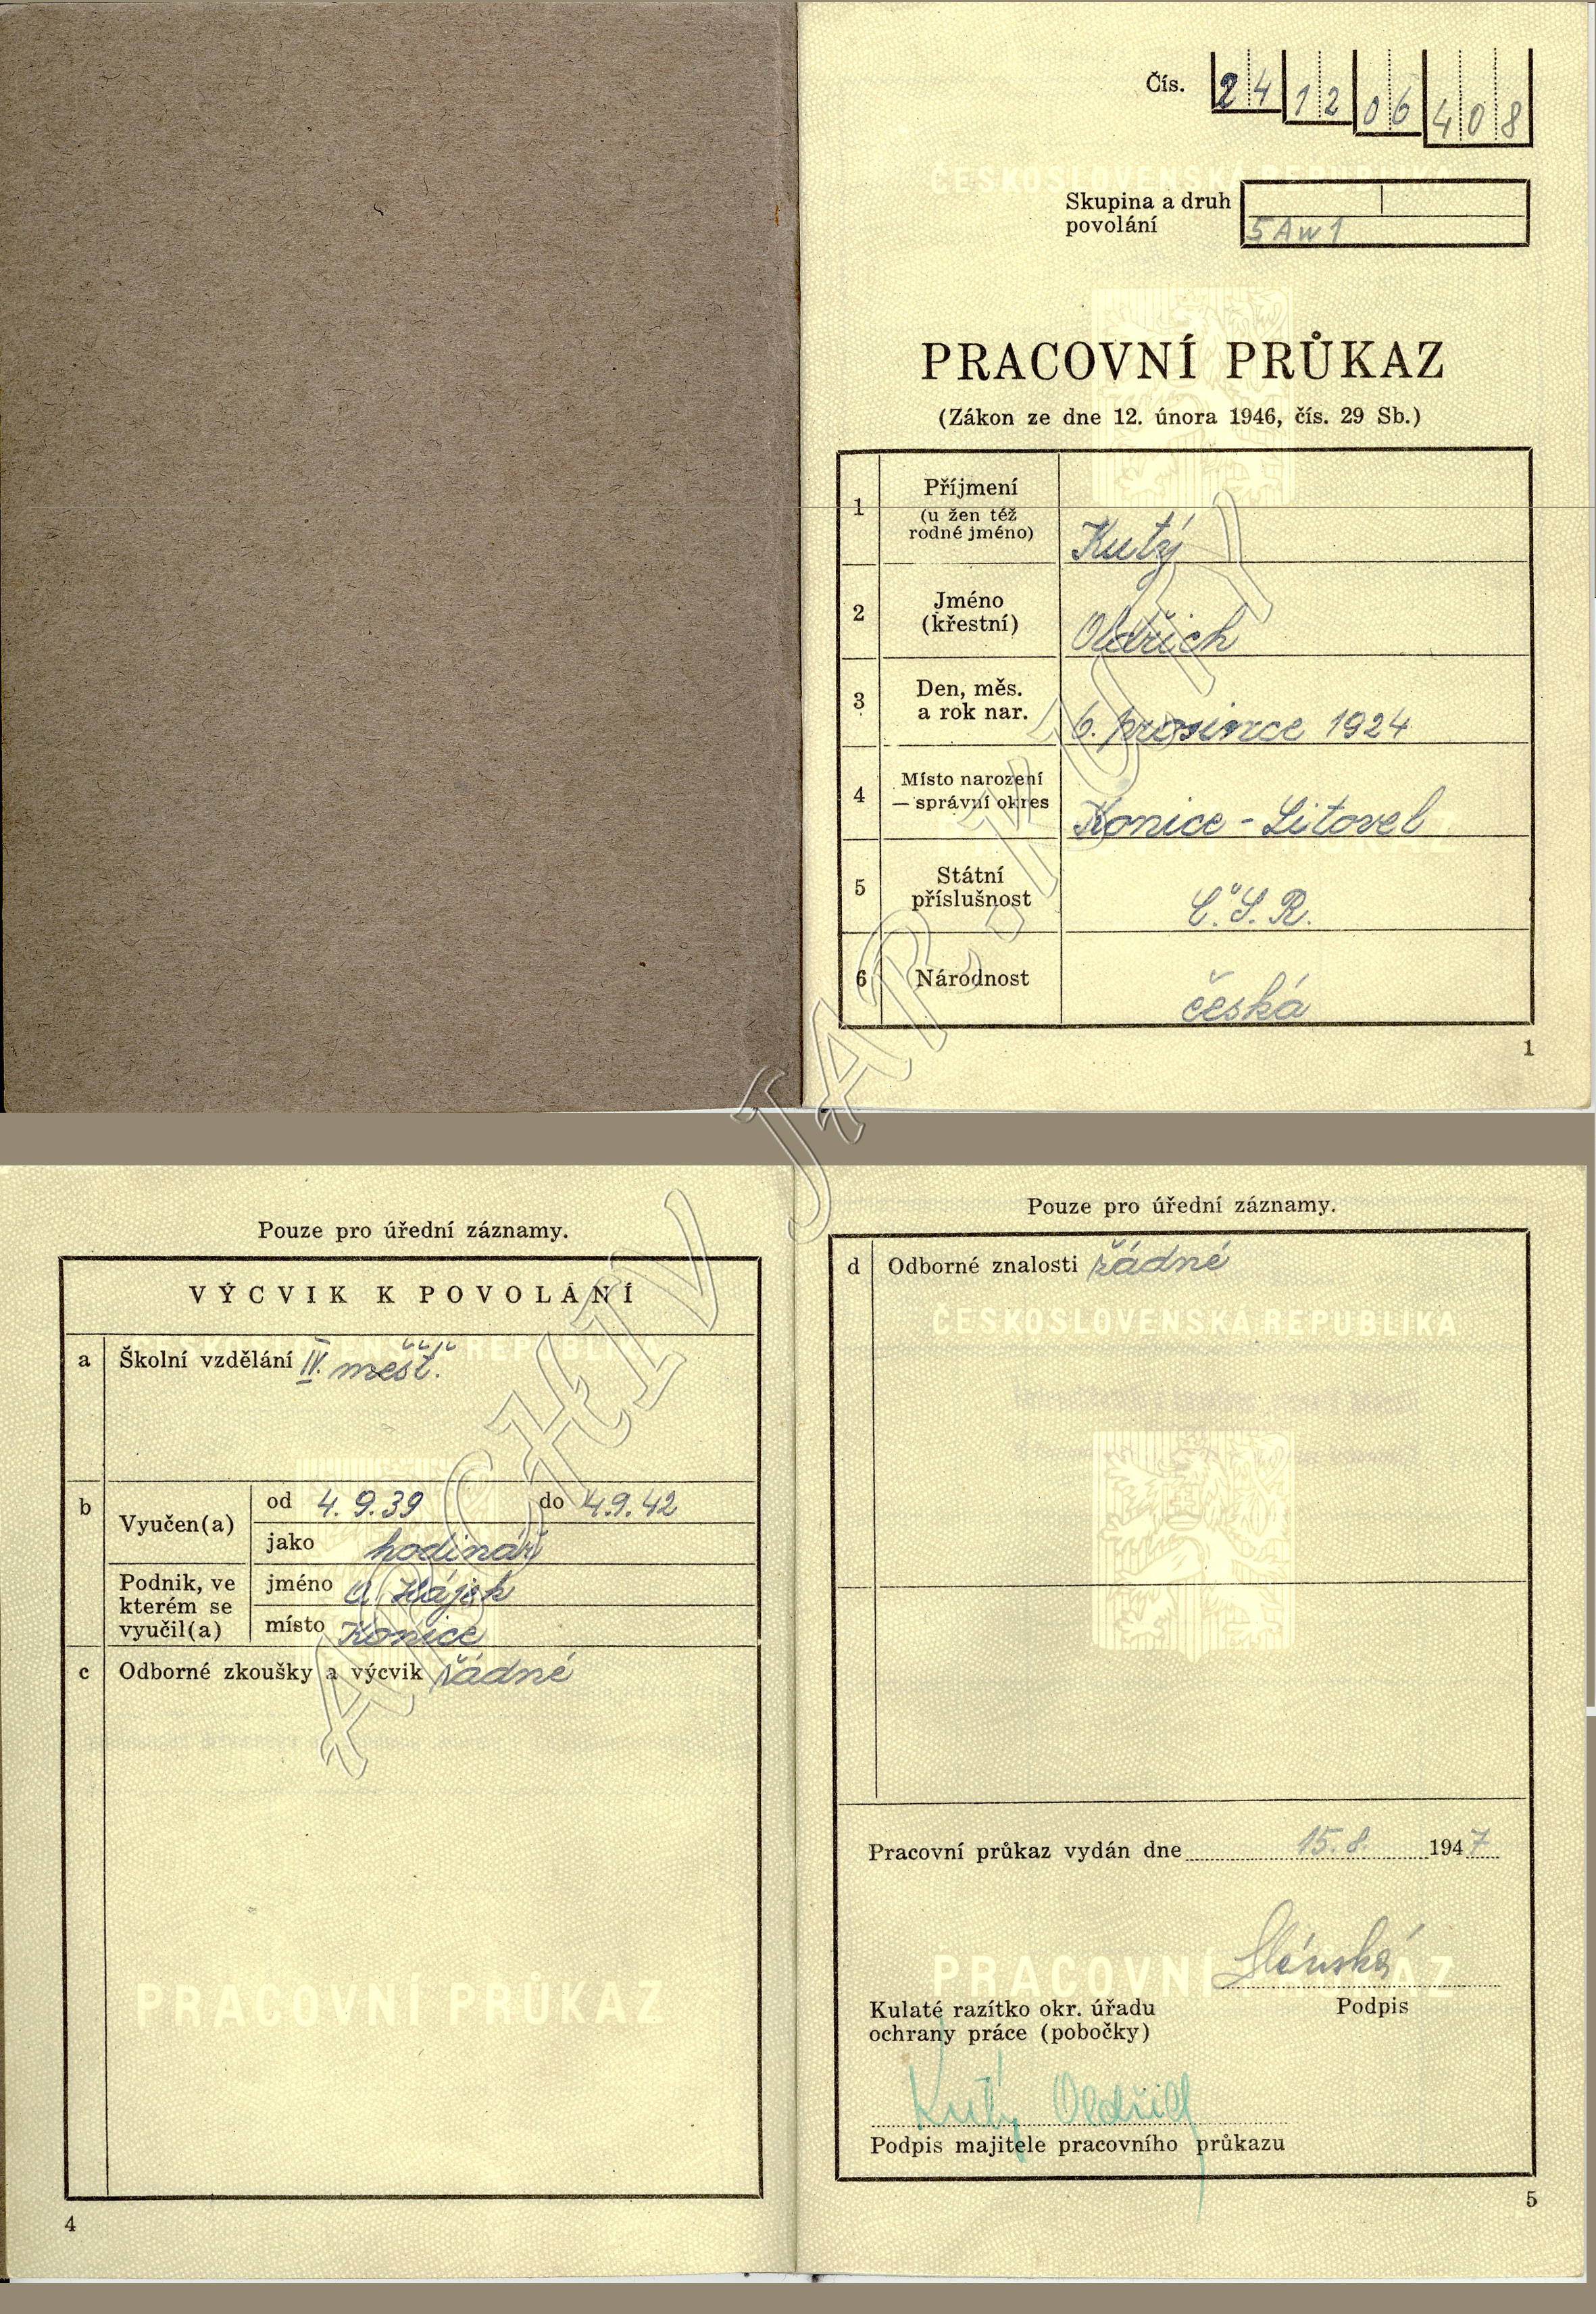 Čís. 24 12 06 408
ČESKOSLOVENSKÁ REPUBLIKA
Skupina a druh
povolání
5 A w 1
PRACOVNÍ PRŮKAZ
(Zákon ze dne 12. února 1946, čís. 29 Sb.)
1 Příjmení
(u žen též
rodné jméno) Kutý
2 Jméno
(křestní) Oldřich
3 Den, měs.
a rok nar. 6. prosince 1924
4 Místo narození
— správní okres Konice - Litovel
PRACOVNÍ PRŮKAZ
5 Státní
příslušnost Č. S. R.
6 Národnost česká
1
ARCHIV JAR. KUTÝ
Pouze pro úřední záznamy.
VÝCVIK K POVOLÁNÍ
ČESKOSLOVENSKÁ REPUBLIKA
a Školní vzdělání IV. měšť.
b Vyučen(a) od 4. 9. 39 do 4. 9. 42
jako hodinář
Podnik, ve
kterém se
vyučil(a)
jméno Hájek
místo Konice
c Odborné zkoušky a výcvik řádné
PRACOVNÍ PRŮKAZ
4
Pouze pro úřední záznamy.
d Odborné znalosti řádné
ČESKOSLOVENSKÁ REPUBLIKA
Pracovní průkaz vydán dne 15. 8. 1947
PRACOVNÍ PRŮKAZ
Kulaté razítko okr. úřadu
ochrany práce (pobočky)
Podpis
Kutý Oldřich
Podpis majitele pracovního průkazu
5